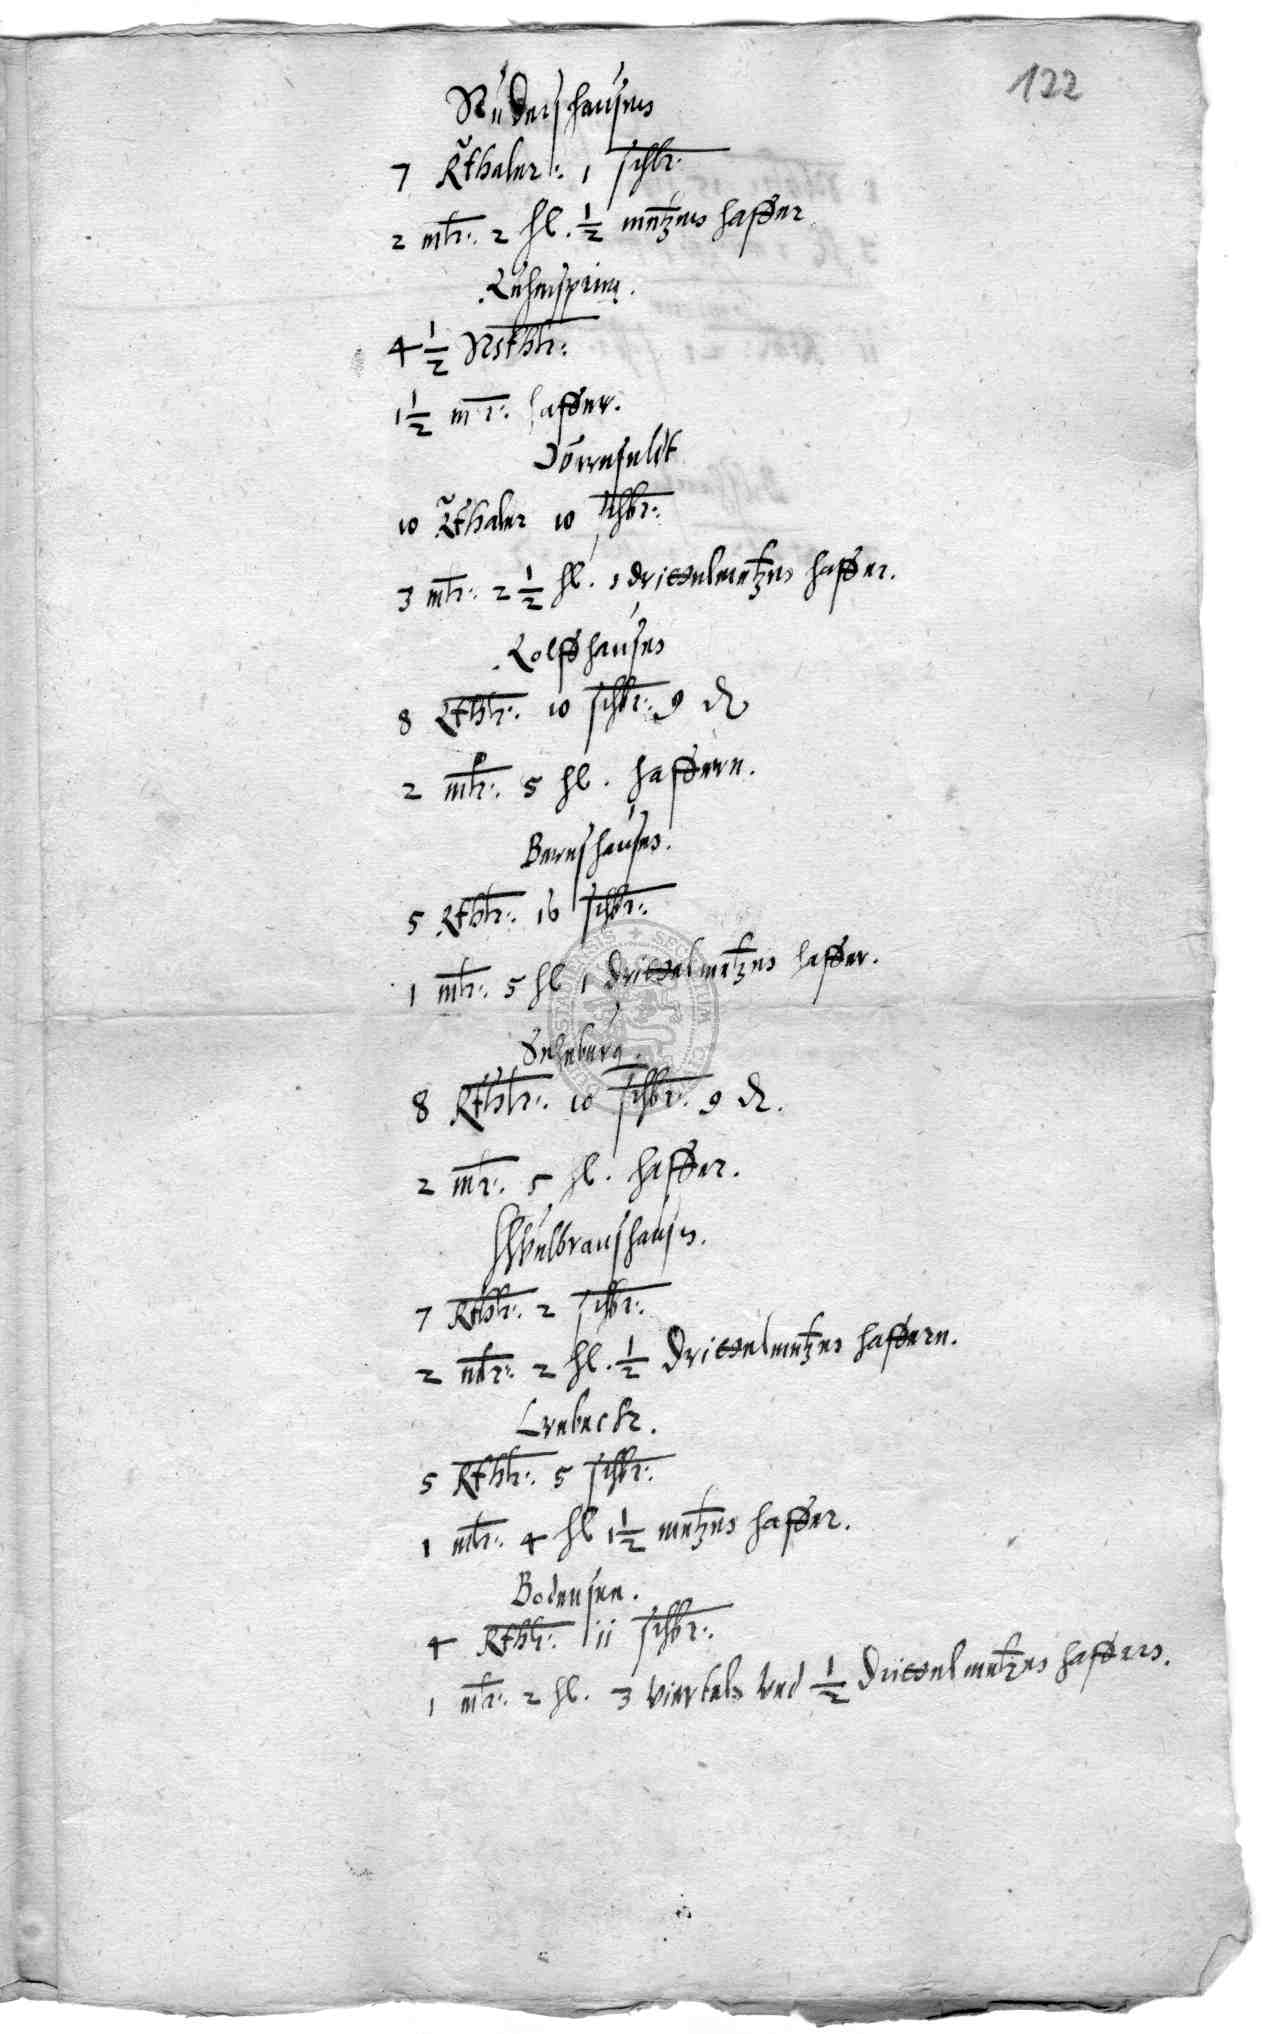 122
Rüdershausen
7 Rthaler. 1 schbr.
2 mltr. 2 hl. ½ metzen haffer
Rühenspring.
4½ Rsthlr.
1½ mr. haffer.
Dörrefeldt
10 Rthaler 10 schbr.
3 mltr. 2½ hl. 1 drittelmetzen haffer.
Rolffshausen
8 Rthlr. 10 schbr. 9 ₰
2 mltr. 5 hl. haffern.
Berneshausen.
5 Rthlr. 16 schbr.
1 mltr. 5 hl 1 drittelmetzen haffer.
Seeburg.
8 Rthlr. 10 schbr. 9 ₰.
2 mltr. 5 hl. haffer.
Wulbraushausen.
7 Rthlr. 2 schbr.
2 mltr. 2 hl. ½ drittelmetzen haffern.
Krebeck.
5 Rthlr. 5 schbr.
1 mltr. 4 hl 1½ metzen haffer.
Bodensee.
4 Rthlr. 11 schbr.
1 mltr. 2 hl. 3 viertels vnd ½ drittelmetzen haffers.